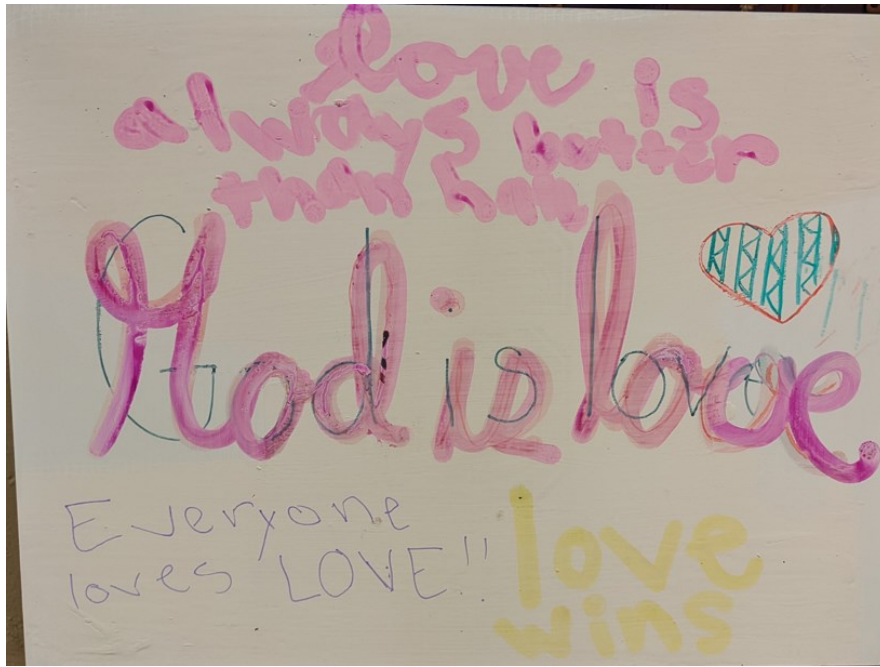 love is
always better
than
God is love
Everyone
loves LOVE!!
love
wins